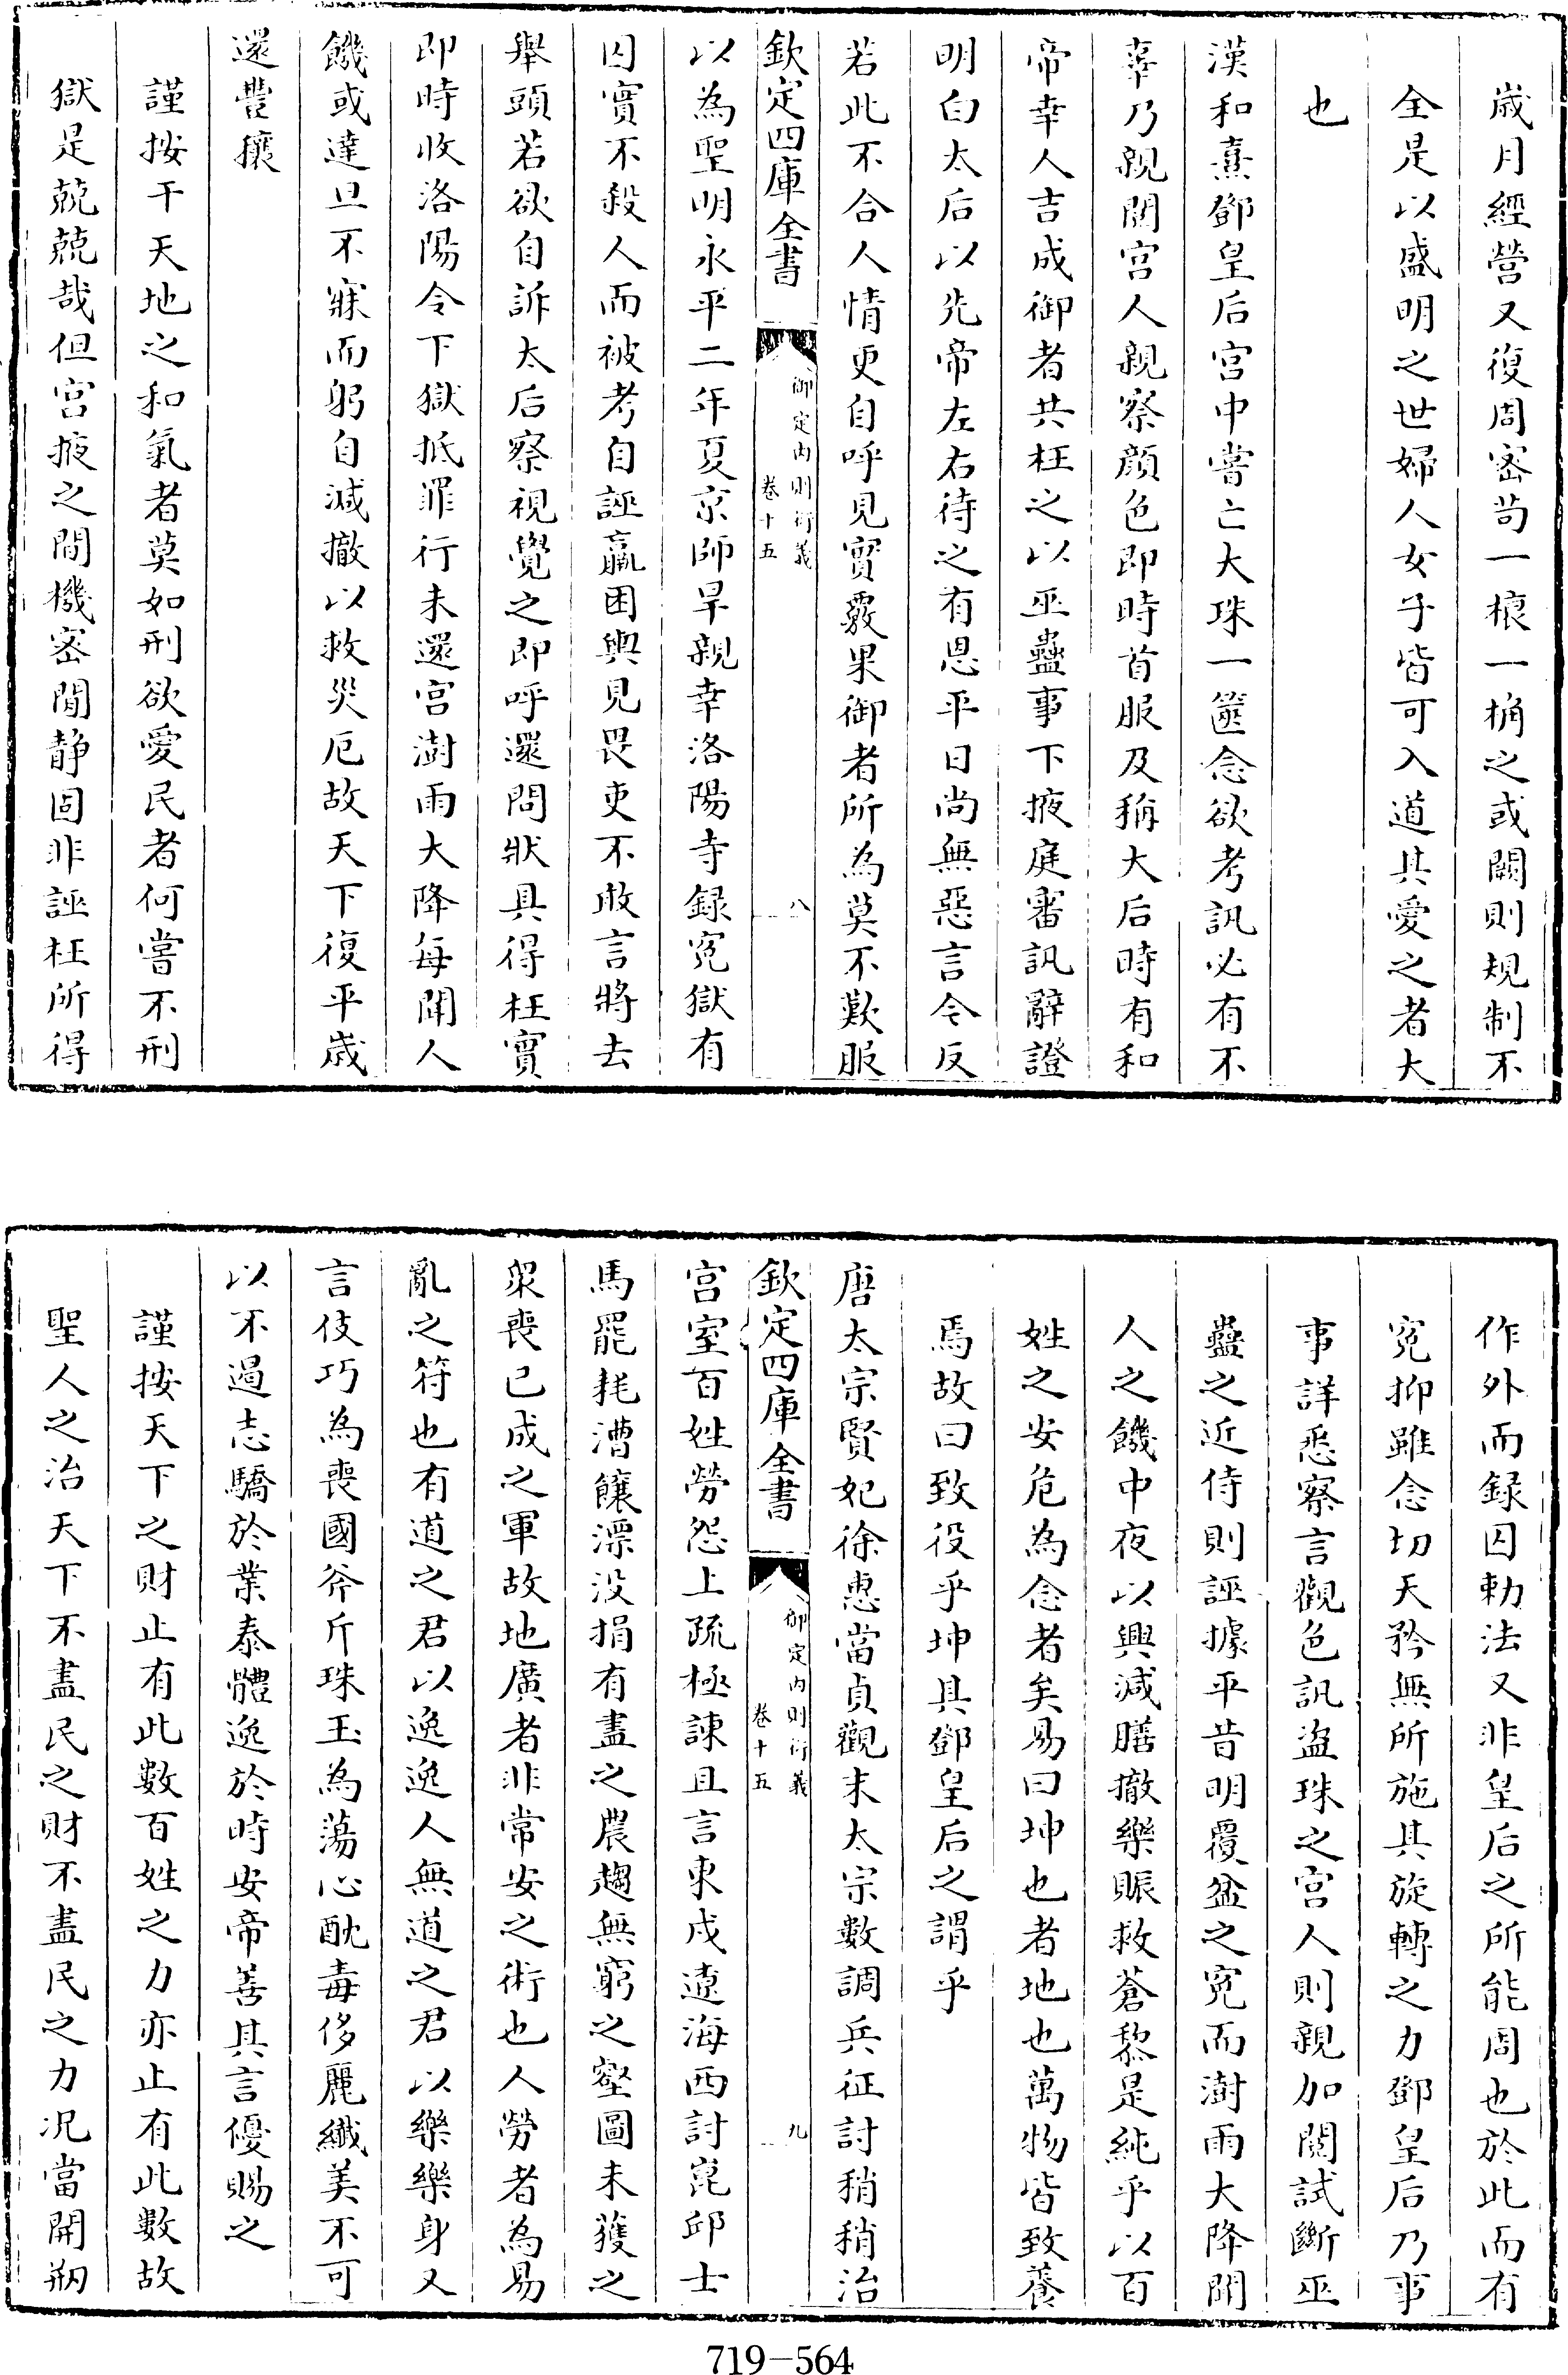 歲月經營又復周密苟一榱一桷之或闕則規制不
全是以盛明之世婦人女子皆可入道其愛之者大
也
漢和熹鄧皇后宫中嘗亡大珠一篋念欲考訊必有不
辜乃親閱宫人親察顔色即時首服及稱大后時有和
帝幸人吉成御者共枉之以巫蠱事下掖庭審訊辭證
明白太后以先帝左右待之有恩平日尚無惡言今反
若此不合人情更自呼見實覈果御者所為莫不歎服
欽定四庫全書
御定内則衍義
卷十五
八
以為聖明永平二年夏京師旱親幸洛陽寺録寃獄有
囚實不殺人而被考自誣羸困輿見畏吏不敢言將去
舉頭若欲自訴太后察視覺之即呼還問狀具得枉實
即時收洛陽令下獄抵罪行未還宫澍雨大降每聞人
饑或達旦不寐而躬自減撤以救災厄故天下復平歲
還豐穰
謹按干天地之和氣者莫如刑欲愛民者何嘗不刑
獄是兢兢哉但宫掖之間機密閒静固非誣枉所得
作外而録囚勅法又非皇后之所能周也於此而有
寃抑雖念切天矜無所施其旋轉之力鄧皇后乃事
事詳悉察言觀色訊盗珠之宫人則親加閱試斷巫
蠱之近侍則誣據平昔明覆盆之寃而澍雨大降聞
人之饑中夜以興減膳撤樂賑救蒼黎是純乎以百
姓之安危為念者矣易曰坤也者地也萬物皆致養
焉故曰致役乎坤其鄧皇后之謂乎
唐太宗賢妃徐惠當貞觀末太宗數調兵征討稍稍治
欽定四庫全書
御定内則衍義
卷十五
九
宫室百姓勞怨上疏極諫且言東戍遼海西討崑邱士
馬罷耗漕饟漂没捐有盡之農趨無窮之壑圖未獲之
衆喪已成之軍故地廣者非常安之術也人勞者為易
亂之符也有道之君以逸逸人無道之君以樂樂身又
言伎巧為喪國斧斤珠玉為蕩心酖毒侈麗纖美不可
以不遏志驕於業泰體逸於時安帝善其言優賜之
謹按天下之財止有此數百姓之力亦止有此數故
聖人之治天下不盡民之財不盡民之力况當開剏
719-564